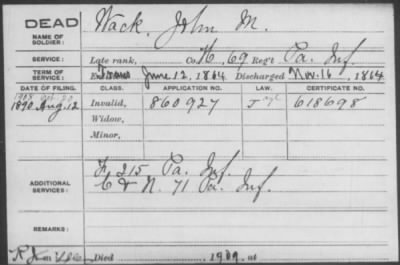 DEAD Wack, John M.
NAME OF SOLDIER:
SERVICE: Late rank, Co. H, 69 Regt Pa. Inf.
TERM OF SERVICE: June 12, 1864 Discharged Nov. 16, 1864
DATE OF FILING. CLASS. APPLICATION NO. LAW. CERTIFICATE NO.
1890 Aug. 12 Invalid, 860927 618698
Widow,
Minor,
F 215 Pa. Inf.
ADDITIONAL SERVICES: & N. 71 Pa. Inf.
REMARKS:
Died 1909, at